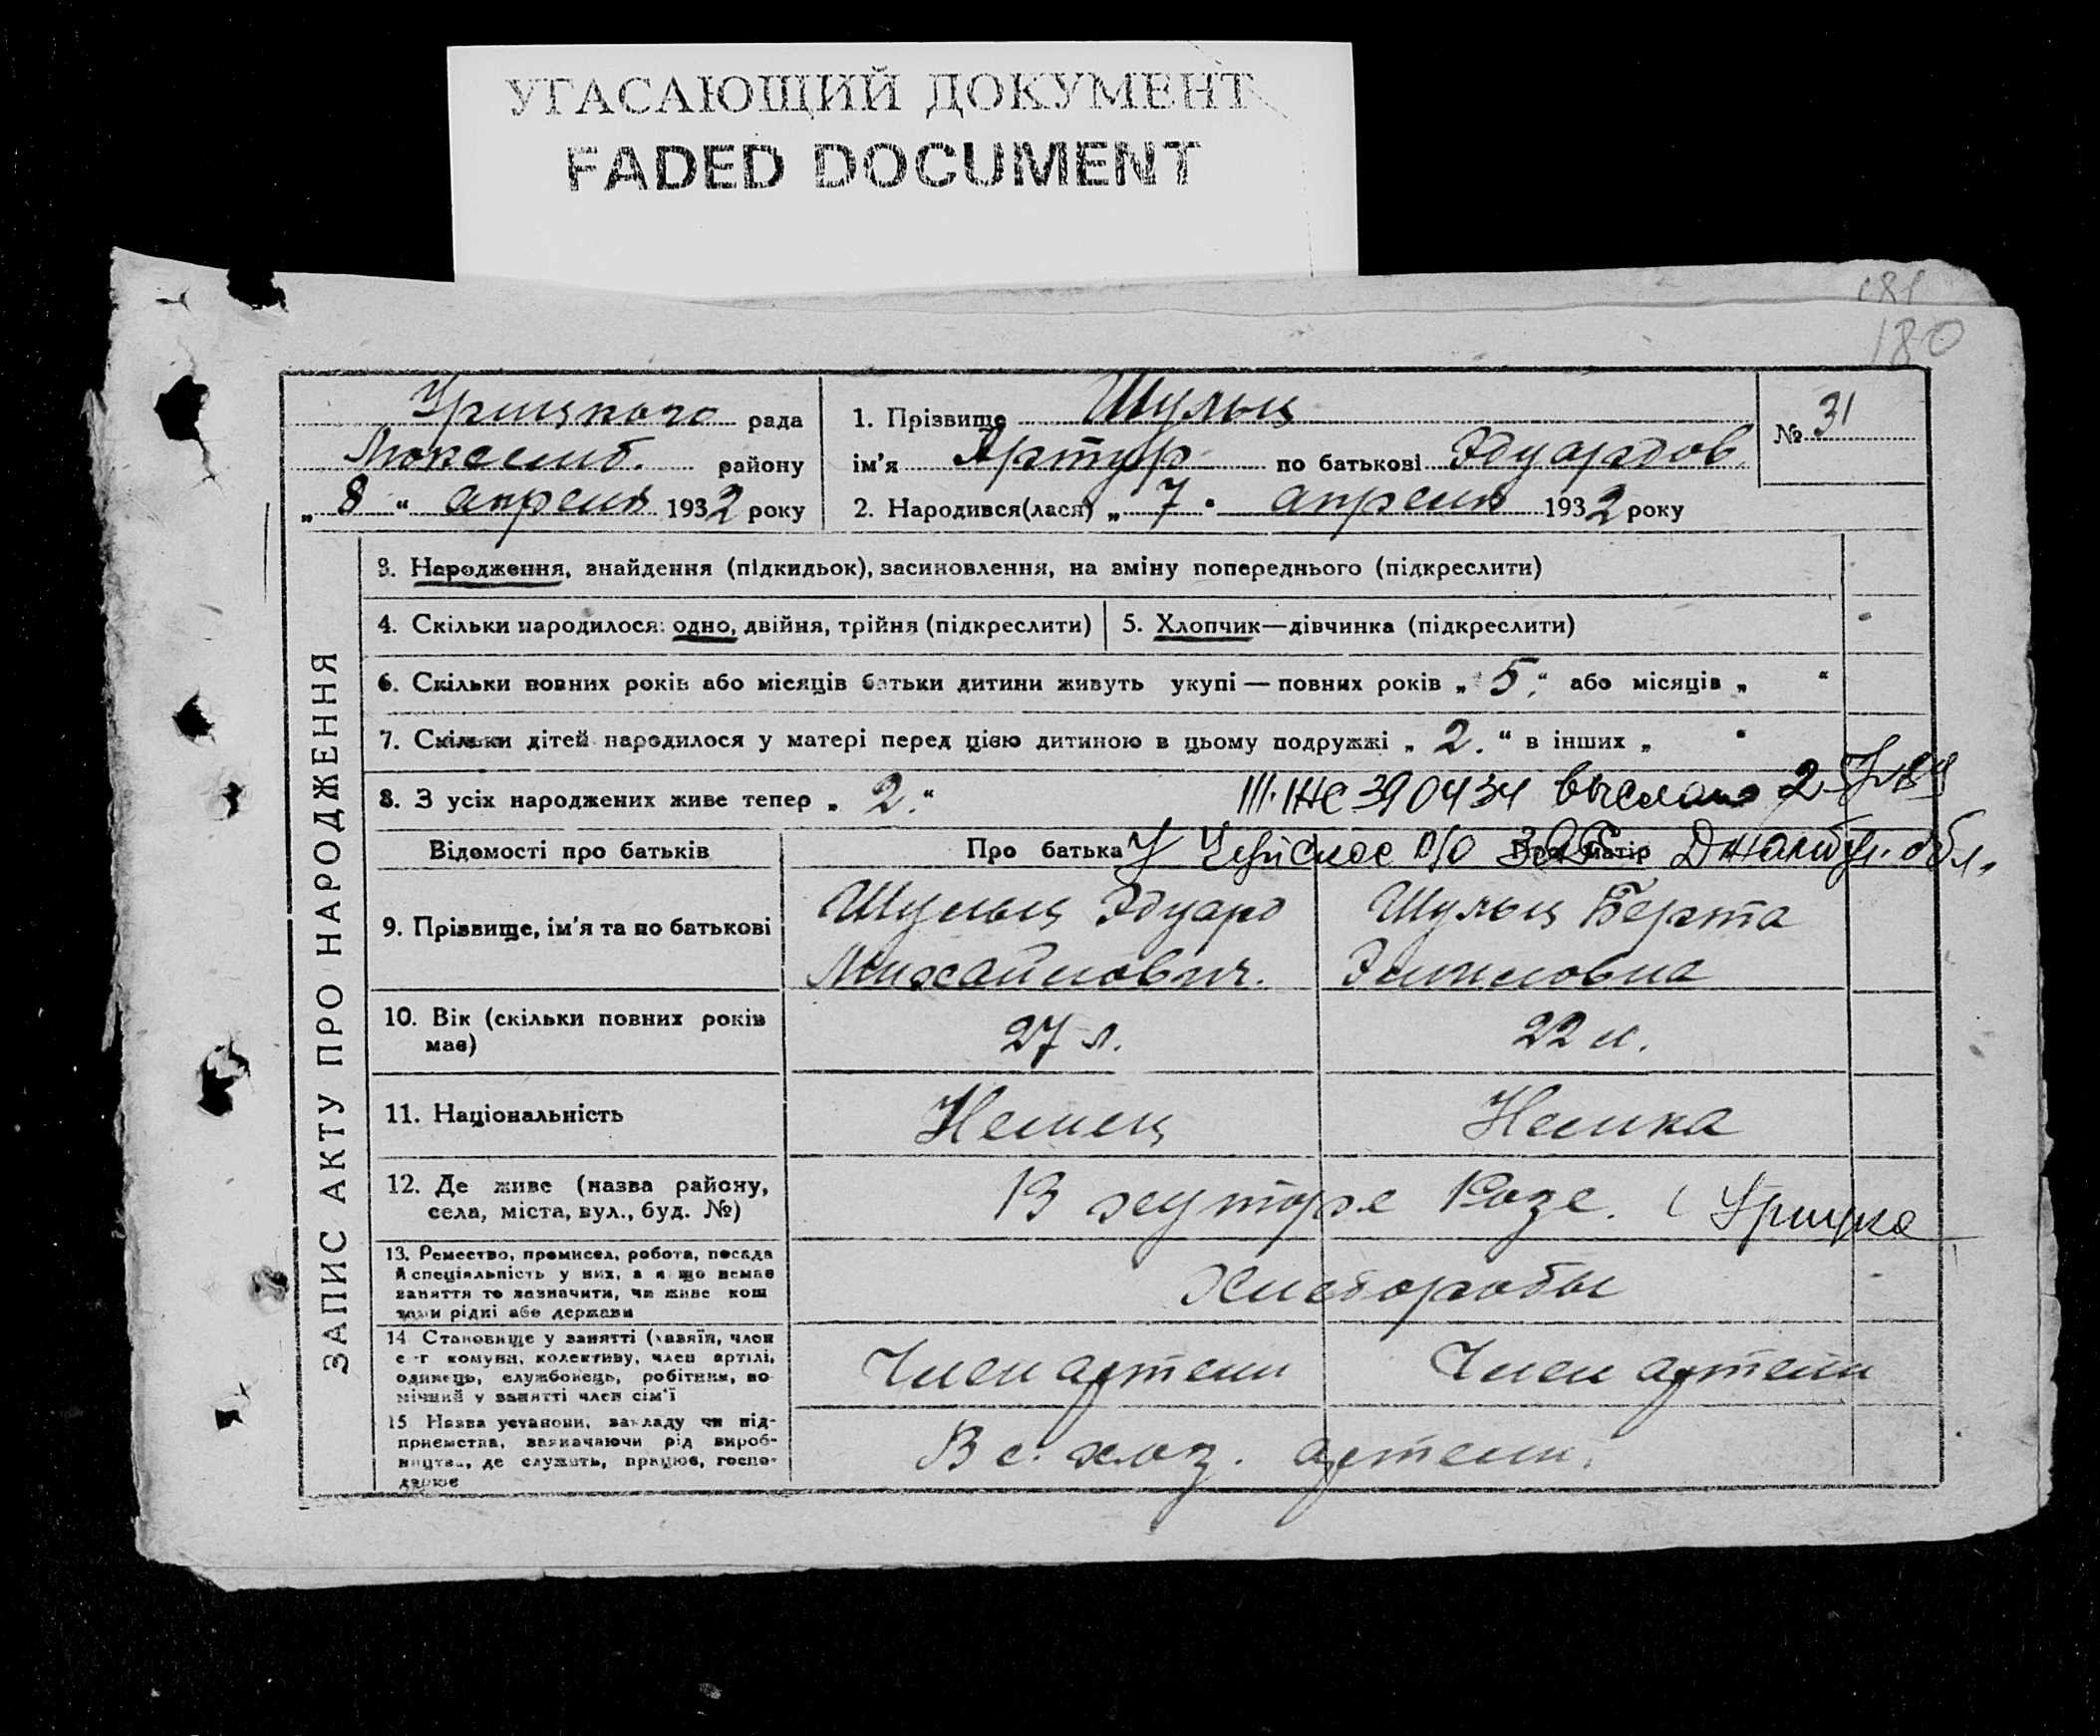 УГАСАЮЩИЙ ДОКУМЕНТ
FADED DOCUMENT
181
180
Урицкого рада
района району
„ 8 “ апреля 1932 року
1. Прізвище Шульц
ім’я Артур по батькові Эдуардов
2. Народився(лася) „ 7 “ апреля 1932 року
№ 31
ЗАПИС АКТУ ПРО НАРОДЖЕННЯ
3. Народження, знайдення (підкидьок), засиновлення, на зміну попереднього (підкреслити)
4. Скільки народилося: одно, двійня, трійня (підкреслити)
5. Хлопчик—дівчинка (підкреслити)
6. Скільки повних років або місяців батьки дитини живуть укупі — повних років „ 5. “ або місяців „ “
7. Скільки дітей народилося у матері перед цією дитиною в цьому подружжі „ 2. “ в інших „ “
8. З усіх народжених живе тепер „ 2. “
III-ЖС 390434 выслано
Відомості про батьків
Про батька
Про матір
п/о ЗАГС Джамбул. обл.
9. Прізвище, ім’я та по батькові
Шульц Эдуард
Михайлович.
Шульц Берта
Эмиловна
10. Вік (скільки повних років має)
27 л.
22 л.
11. Національність
Немец
Немка
12. Де живе (назва району, села, міста, вул., буд. №)
В хуторе Розе. (Урицка
13. Ремество, промисел, робота, посада й спеціяльність у них, а якщо немає заняття то зазначити, чи живе коштами рідні або держави
Хлеборобы
14 Становище у занятті (хазяїн, член с-г комуни, колективу, член артілі, одинець, службовець, робітник, помічний у занятті член сім’ї
Член артели
Член артели
15 Назва установи, закладу чи підприємства, зазначаючи рід виробництва, де служить, працює, господарює
В с. хоз. артели.